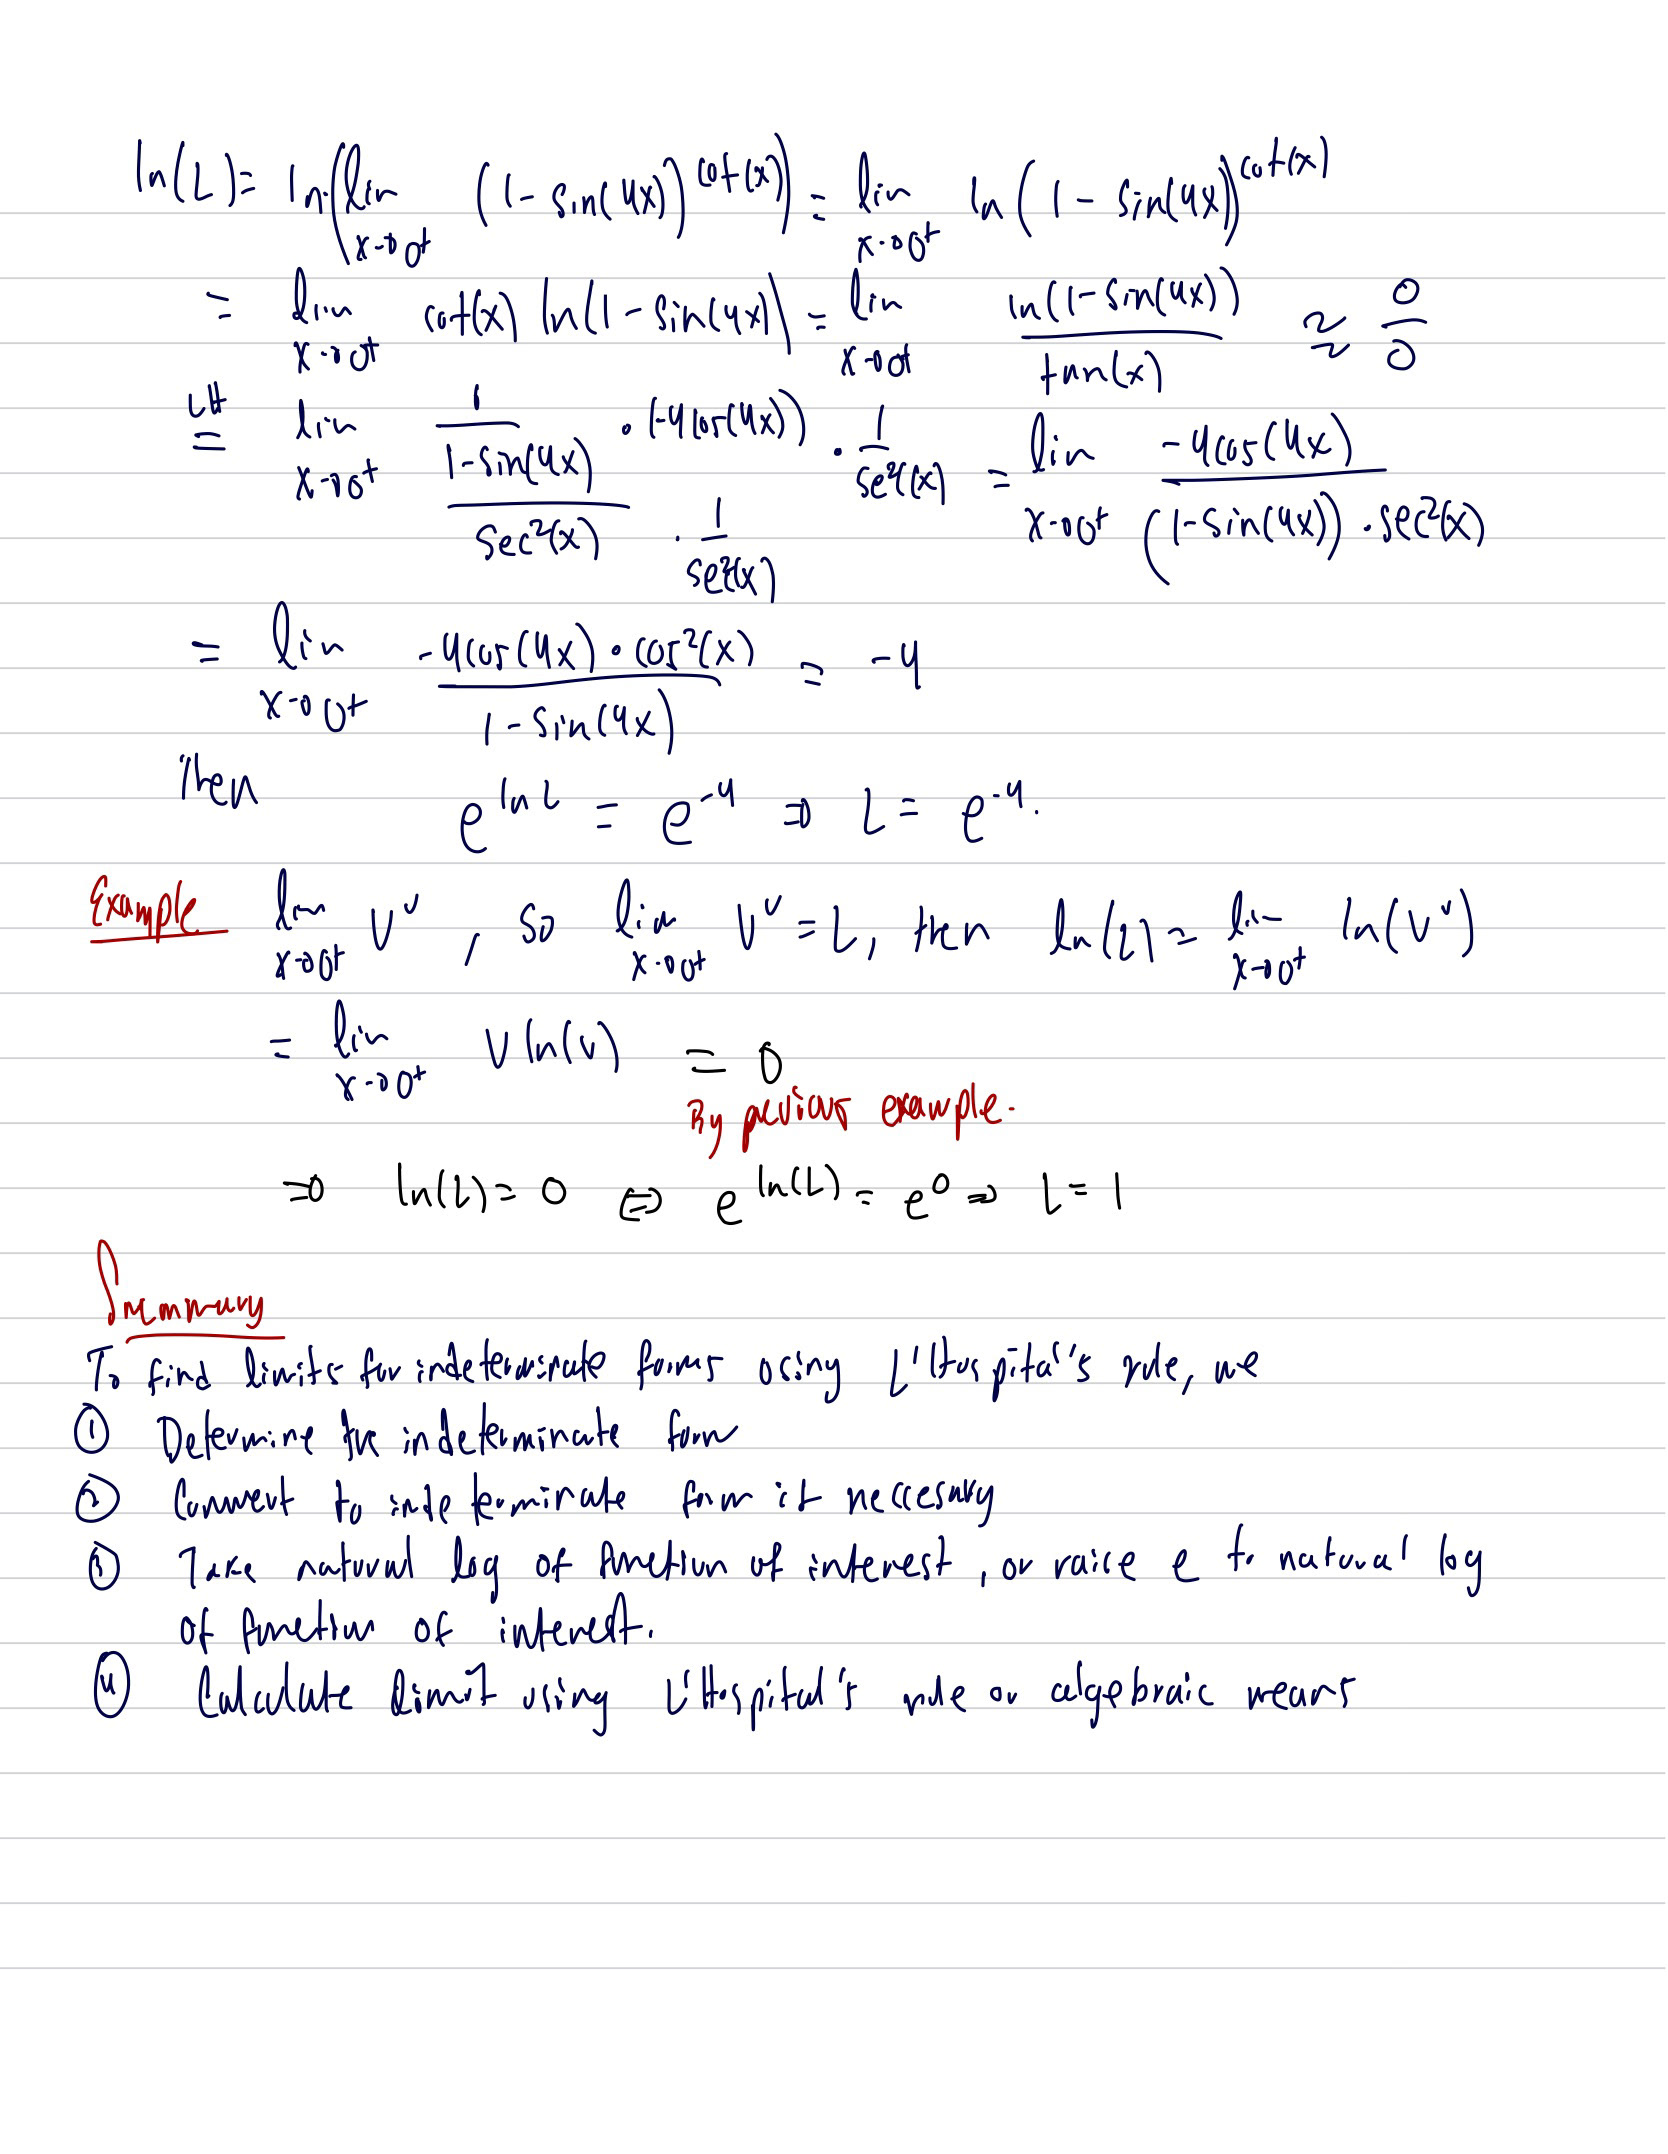 ln(L) = ln(lim x→0⁺ (1 - sin(4x))^cot(x)) = lim x→0⁺ ln(1 - sin(4x))^cot(x)
= lim x→0⁺ cot(x) ln(1 - sin(4x)) = lim x→0⁺ ln(1 - sin(4x)) / tan(x) ≈ 0/0
LH = lim x→0⁺ (1/(1 - sin(4x)) · (-4cos(4x)) · 1/sec²(x)) / (sec²(x) · 1/sec²(x)) = lim x→0⁺ -4cos(4x) / ((1 - sin(4x)) · sec²(x))
= lim x→0⁺ -4cos(4x) · cos²(x) / (1 - sin(4x)) = -4
Then
e^ln L = e^-4 ⇒ L = e^-4.
Example lim x→0⁺ v^v, so lim x→0⁺ v^v = L, then ln(L) = lim x→0⁺ ln(v^v)
= lim x→0⁺ v ln(v) = 0
By previous example.
⇒ ln(L) = 0 ⇔ e^ln(L) = e^0 ⇒ L = 1
Summary
To find limits for indeterminate forms using L'Hospital's rule, we
① Determine the indeterminate form
② Convert to indeterminate form if neccesary
③ Take natural log of function of interest, or raise e to natural log
of function of interest.
④ Calculate limit using L'Hospital's rule or algebraic means